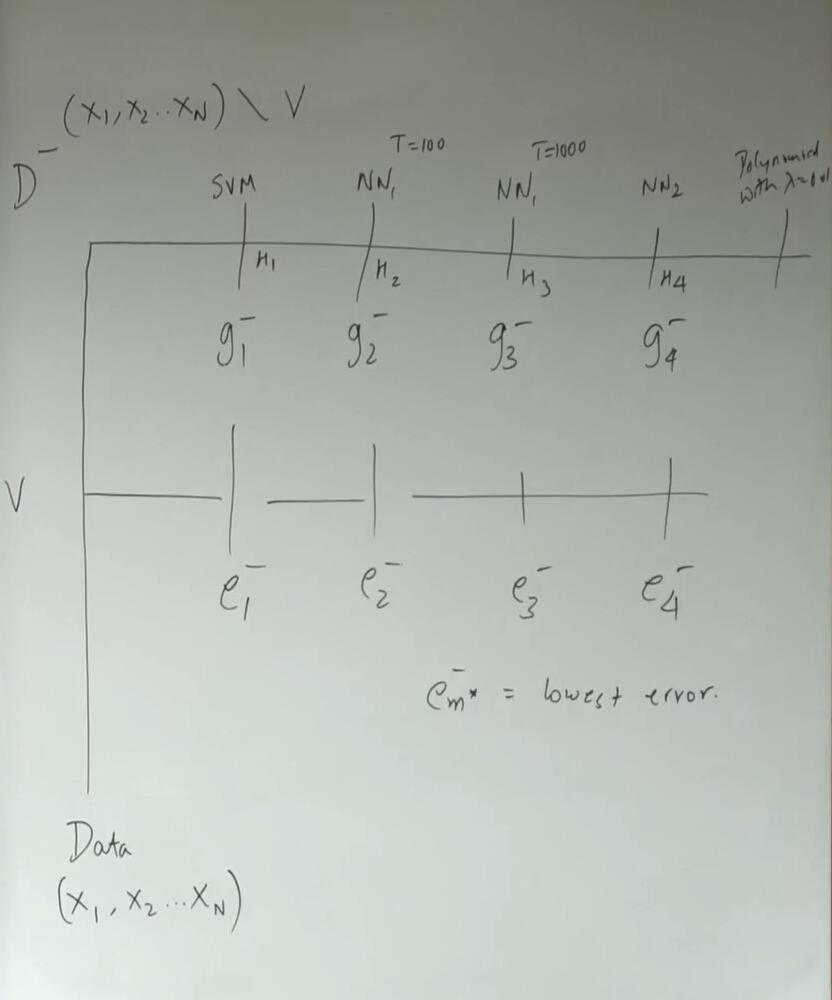 (x₁, x₂ .. x_N) \ V
D⁻
T=100
T=1000
SVM
NN₁
NN₁
NN₂
with
H₁
H₂
H₃
H₄
g₁⁻
g₂⁻
g₃⁻
g₄⁻
V
e₁⁻
e₂⁻
e₃⁻
e₄⁻
e⁻ₘ* = lowest error.
Data
(x₁, x₂ ... x_N)